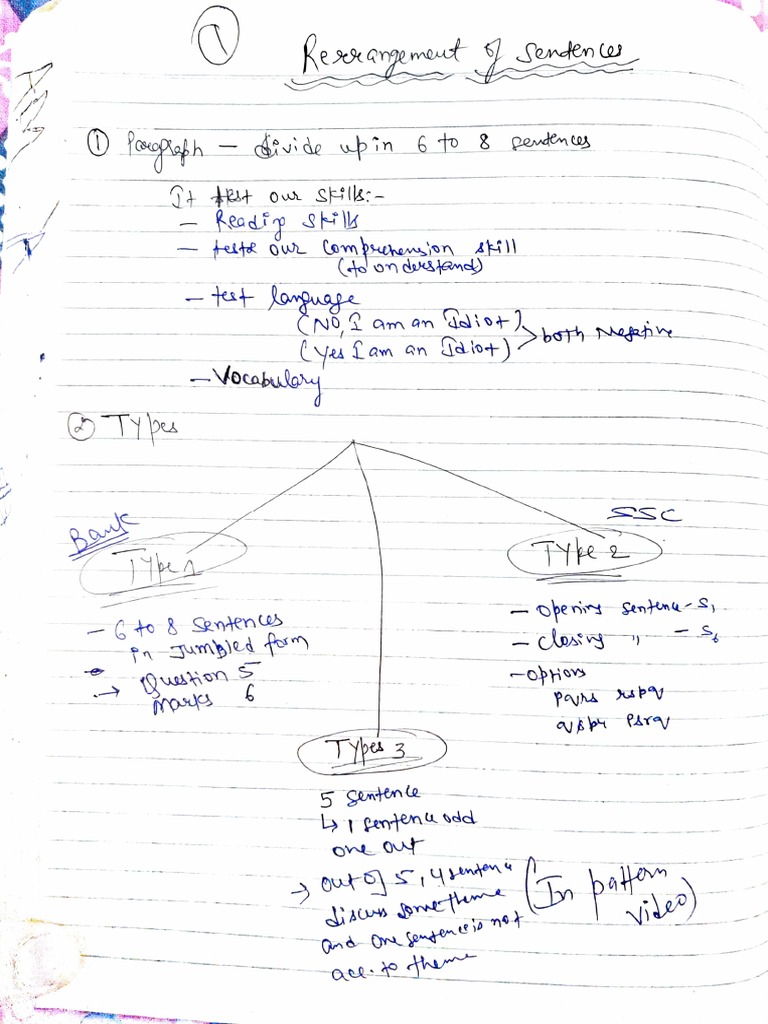 1
Rerrangement of sentences
① Paragraph – divide up in 6 to 8 sentences
It test our skills:-
– Reading skills
– tests our comprehension skill
(to understand)
– test language
(No, I am an Idiot)
(Yes I am an Idiot) > both Negative
– Vocabulary
② Types
Bank
Type 1
– 6 to 8 sentences
in Jumbled form
– Question 5
→ Marks 6
SSC
Type 2
– opening sentence - S1
– closing " - S6
– options
pqrs rspq
qspr psrq
Types 3
5 sentence
↳ 1 sentence odd
one out
→ out of 5, 4 sentence
discuss some theme
and one sentence is not
acc. to theme
(In pattern
video)